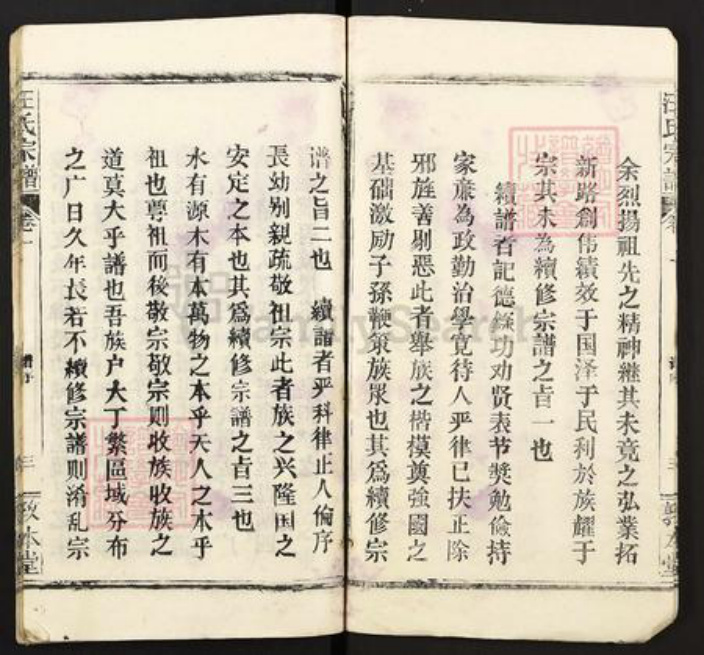 余烈揚祖先之精神継其未竟之弘業拓
新路創伟績效于国泽于民利於族耀于
宗其未為續修宗譜之旨一也
續譜者記德錄功劝贤表节獎勉儉持
家亷為政勤治學寛待人严律已扶正除
邪旌善剔惡此者舉族之楷模奠強國之
基础激励子孫鞭策族眾也其為續修宗
谱之旨二也 續譜者严科律止人倫序
長幼别親疏敬祖宗此者族之兴隆国之
安定之本也其為續修宗譜之旨三也
水有源木有本萬物之本乎天人之本乎
祖也尊祖而後敬宗敬宗則收族收族之
道莫大乎譜也吾族户大丁繁區域分布
之广日久年長若不續修宗譜則淆乱宗
汪氏宗譜
卷一
譜序
三
敦本堂
FamilySearch